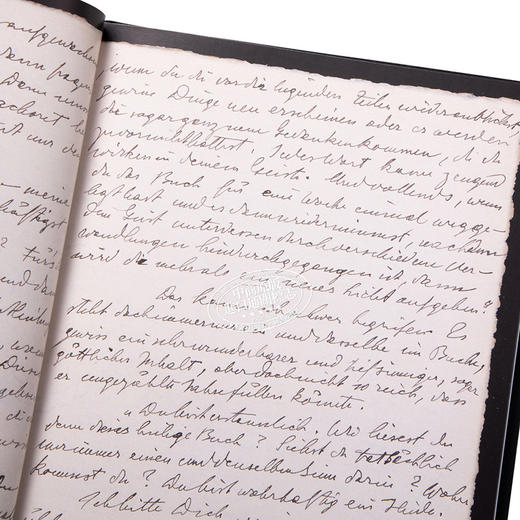 aufgewachsen
meine
wenn du die vor dir liegenden Zeilen wieder anblickst,
gewisse Dinge neu erscheinen oder es werden
dir sogar ganz neue Gedanken kommen, die du
zuvor nicht hattest. Jedes Wort kann zeugend
wirken in deinem Geist. Und vollends, wenn
du das Buch für eine Woche einmal wegge-
legt hast und es dann wieder nimmst, nachdem
dein Geist unterdessen durch verschiedene Ver-
wandlungen hindurchgegangen ist, dann
wird dir mehr als ein neues Licht aufgehen."
Das kann ich schwer begreifen. Es
steht doch immer ein und dasselbe im Buche,
gewiss ein sehr wunderbarer und tiefsinniger, sogar
göttlicher Inhalt, aber doch nicht so reich, dass
er ungezählte Jahre füllen könnte.
"Du bist erstaunlich. Wie liesest du
denn dieses heilige Buch? Siehst du tatsächlich
nur immer einen und denselben Sinn darin? Woher
kommst du? Du bist wahrhaftig ein Heide.
Ich bitte Dich